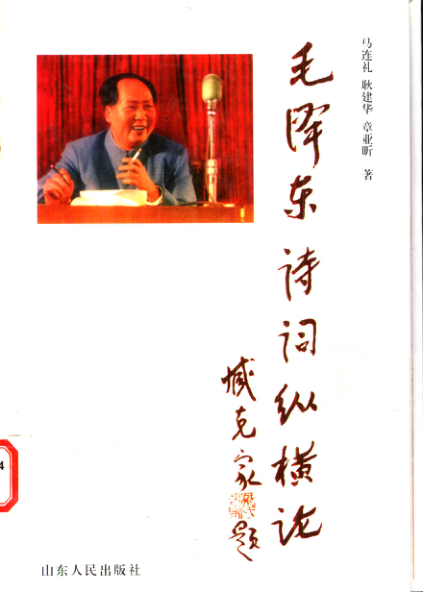 马连礼 耿建华 章亚昕 著
毛泽东诗词纵横论
臧克家题
山东人民出版社
4